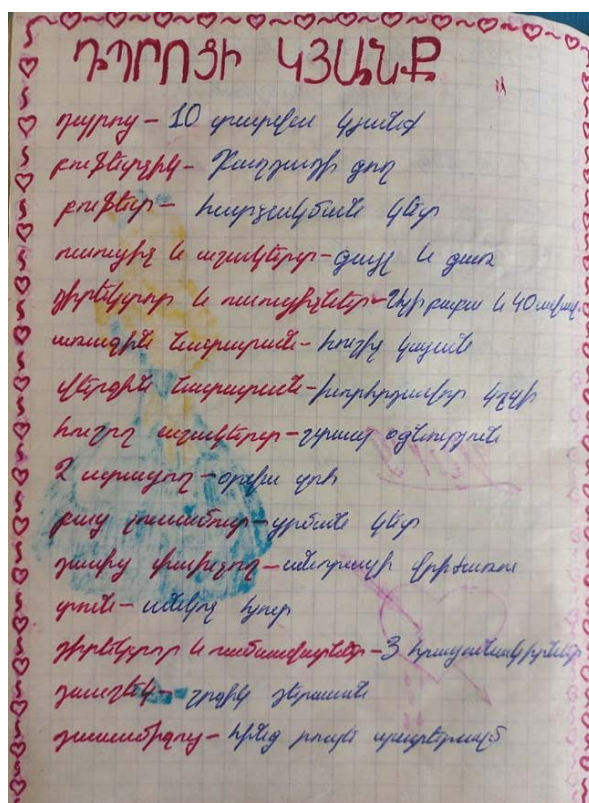 ԴՊՐՈՑԻ ԿՅԱՆՔ
դպրոց - 10 տարվա կյանք
բուֆետչիկ - Բաղդադի գող
բուֆետ - հարձակման կետ
ուսուցիչ և աշակերտ - գայլ և գառ
դիրեկտոր և ուսուցիչներ - Ալի բաբա և 40 ավազ.
առաջին նստարան - հուշիչ կայան
վերջին նստարան - խորհրդավոր կղզի
հուշող աշակերտ - շտապ օգնություն
2 ստացող - օրվա
բաց լուսամուտ - թռչման կետ
դասից փախչող - անորսալի վրիժառու
տուն - անկոչ հյուր
դիրեկտոր և ուսմասվարներ - 3 հրացանակիրներ
դասղեկ - շրջիկ
դասամիջոց - հինգ րոպե պատերազմ